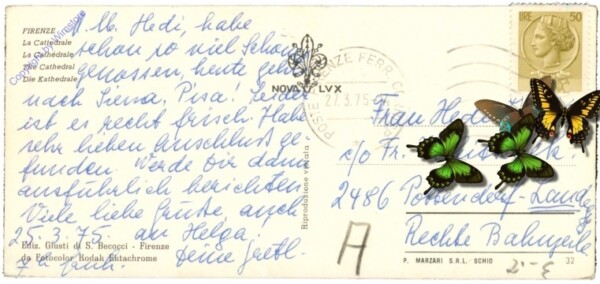 FIRENZE
La Cattedrale
La Cathédrale
The Cathedral
Die Kathedrale
Copyright by Winstore
M. Hedi, habe
schon so viel Schönes
genossen, heute geht
nach Siena, Pisa! Leider
ist es recht frisch. Habe
sehr lieben Anschluss ge-
funden. Werde Dir dann
ausführlich berichten
Viele liebe Grüße, auch
25.3.75. an Helga,
Deine Gretl.
Ediz. Giusti di S. Becocci - Firenze
da Fotocolor Kodak Ektachrome
NOVA LVX
Riproduzione vietata
POSTE FIRENZE FERR.
27.3.75
LIRE 50
Frau Hedi
c/o Fr.
2486 Pottendorf-Landegg
Rechte Bahnzeile
A
P. MARZARI S.R.L. - SCHIO
32